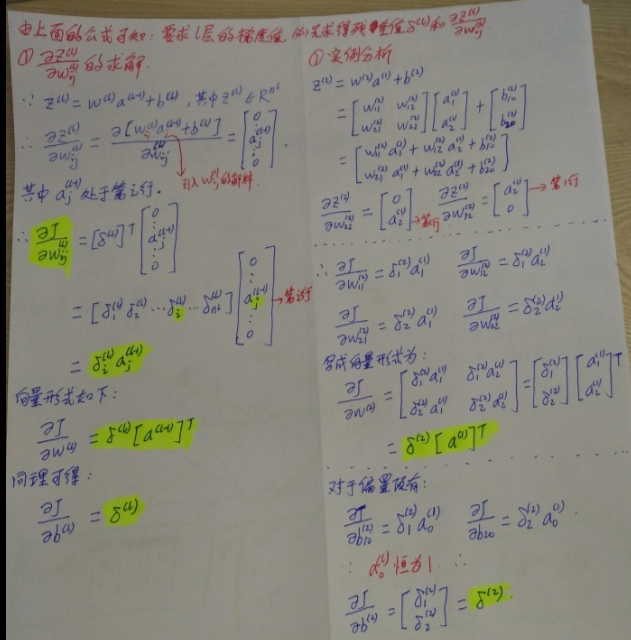 由上面的公式可知：要求l层的梯度值，必先求得残差值δ^(l)和 ∂z^(l)/∂w_ij^(l)
① ∂z^(l)/∂w_ij^(l) 的求解.
∵ z^(l) = w^(l)a^(l-1)+b^(l), 其中z^(l)∈R^(n^l)
∴ ∂z^(l)/∂w_ij^(l) = ∂[w^(l)a^(l-1)+b^(l)]/∂w_ij^(l) = [0 ⋮ a_j^(l-1) ⋮ 0].
引入w_ij^(l)的解释.
其中a_j^(l-1)处于第i行。
∴ ∂J/∂w_ij^(l) = [δ^(l)]^T [0 ⋮ a_j^(l-1) ⋮ 0]
= [δ_1^(l) δ_2^(l) ⋯ δ_i^(l) ⋯ δ_n^l^(l)] [0 ⋮ a_j^(l-1) ⋮ 0] → 第i行
= δ_i^(l) a_j^(l-1)
向量形式如下:
∂J/∂w^(l) = δ^(l)[a^(l-1)]^T
同理可得:
∂J/∂b^(l) = δ^(l)
② 实例分析
z^(2) = w^(2)a^(1)+b^(2)
= [w_11^(2) w_12^(2); w_21^(2) w_22^(2)] [a_1^(1); a_2^(1)] + [b_10^(2); b_20^(2)]
= [w_11^(2)a_1^(1)+w_12^(2)a_2^(1)+b_10^(2); w_21^(2)a_1^(1)+w_22^(2)a_2^(1)+b_20^(2)]
∂z^(2)/∂w_22^(2) = [0; a_2^(1)] → 第2行 ∂z^(2)/∂w_12^(2) = [a_2^(1); 0] → 第1行
∴ ∂J/∂w_11^(2) = δ_1^(2)a_1^(1) ∂J/∂w_12^(2) = δ_1^(2)a_2^(1)
∂J/∂w_21^(2) = δ_2^(2)a_1^(1) ∂J/∂w_22^(2) = δ_2^(2)a_2^(1)
写成向量形式为:
∂J/∂w^(2) = [δ_1^(2)a_1^(1) δ_1^(2)a_2^(1); δ_2^(2)a_1^(1) δ_2^(2)a_2^(1)] = [δ_1^(2); δ_2^(2)] [a_1^(1); a_2^(1)]^T
= δ^(2)[a^(1)]^T
对于偏置项有:
∂J/∂b_10^(2) = δ_1^(2)a_0^(1) ∂J/∂b_20 = δ_2^(2)a_0^(1).
∵ a_0^(1)恒为1. ∴
∂J/∂b^(2) = [δ_1^(2); δ_2^(2)] = δ^(2).